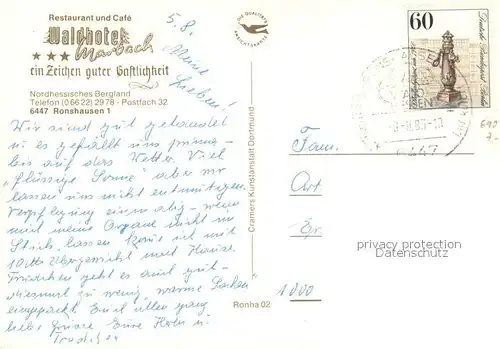 Restaurant und Café
Waldhotel
Marbach
ein Zeichen guter Gastlichkeit
Nordhessisches Bergland
Telefon (06622) 2978 - Postfach 32
6447 Ronshausen 1
5.8.
Meine
Lieben!
Wir sind gut gelandet
u. es gefällt uns prima -
bis auf das Wetter. Viel
"flüssige Sonne" aber wir
lassen uns nicht entmutigen.
Verpflegung einmalig - wenn
mich meine Organe nicht im
Stich lassen, komme ich mit
10 Übergewicht nach Hause.
Frauchen geht es auch gut -
diesmal zu wenig warme Sachen
eingepackt. Euch allen ganz
liebe Grüsse Eure u.
Trudi
DIE QUALITÄTS
ANSICHTSKARTE
Cramers Kunstanstalt Dortmund
Ronha 02
60
Deutsche Bundespost Berlin
6447
Fam.
Ort
Er
1000
privacy protection
Datenschutz